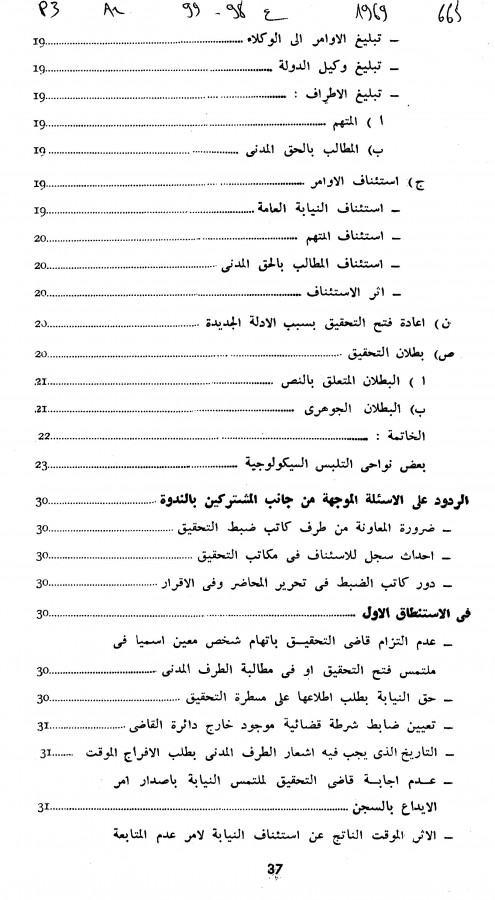 P3 Ar 99 - 98 ع 1969 665
– تبليغ الاوامر الى الوكلاء ........ 19
– تبليغ وكيل الدولة ........ 19
– تبليغ الاطراف : ........ 19
ا ) المتهم ........ 19
ب) المطالب بالحق المدنى ........ 19
ج) استئناف الاوامر ........ 19
– استئناف النيابة العامة ........ 19
– استئناف المتهم ........ 20
– استئناف المطالب بالحق المدنى ........ 20
– اثر الاستئناف ........ 20
ن) اعادة فتح التحقيق بسبب الادلة الجديدة ........ 20
ص) بطلان التحقيق ........ 20
ا ) البطلان المتعلق بالنص ........ 21
ب) البطلان الجوهرى ........ 21
الخاتمة : ........ 22
بعض نواحى التلبس السيكولوجية ........ 23
الردود على الاسئلة الموجهة من جانب المشتركين بالندوة ........ 30
– ضرورة المعاونة من طرف كاتب ضبط التحقيق ........ 30
– احداث سجل للاسئناف فى مكاتب التحقيق ........ 30
– دور كاتب الضبط فى تحرير المحاضر وفى الاقرار ........ 30
فى الاستنطاق الاول ........ 30
– عدم التزام قاضى التحقيق باتهام شخص معين اسميا فى
ملتمس فتح التحقيق او فى مطالبة الطرف المدنى ........ 30
– حق النيابة بطلب اطلاعها على مسطرة التحقيق ........ 30
– تعيين ضابط شرطة قضائية موجود خارج دائرة القاضى ........ 31
– التاريخ الذى يجب فيه اشعار الطرف المدنى بطلب الافراج الموقت ........ 31
– عدم اجابة قاضى التحقيق لملتمس النيابة باصدار امر
الايداع بالسجن ........ 31
– الاثر الموقت الناتج عن استئناف النيابة لامر عدم المتابعة
37